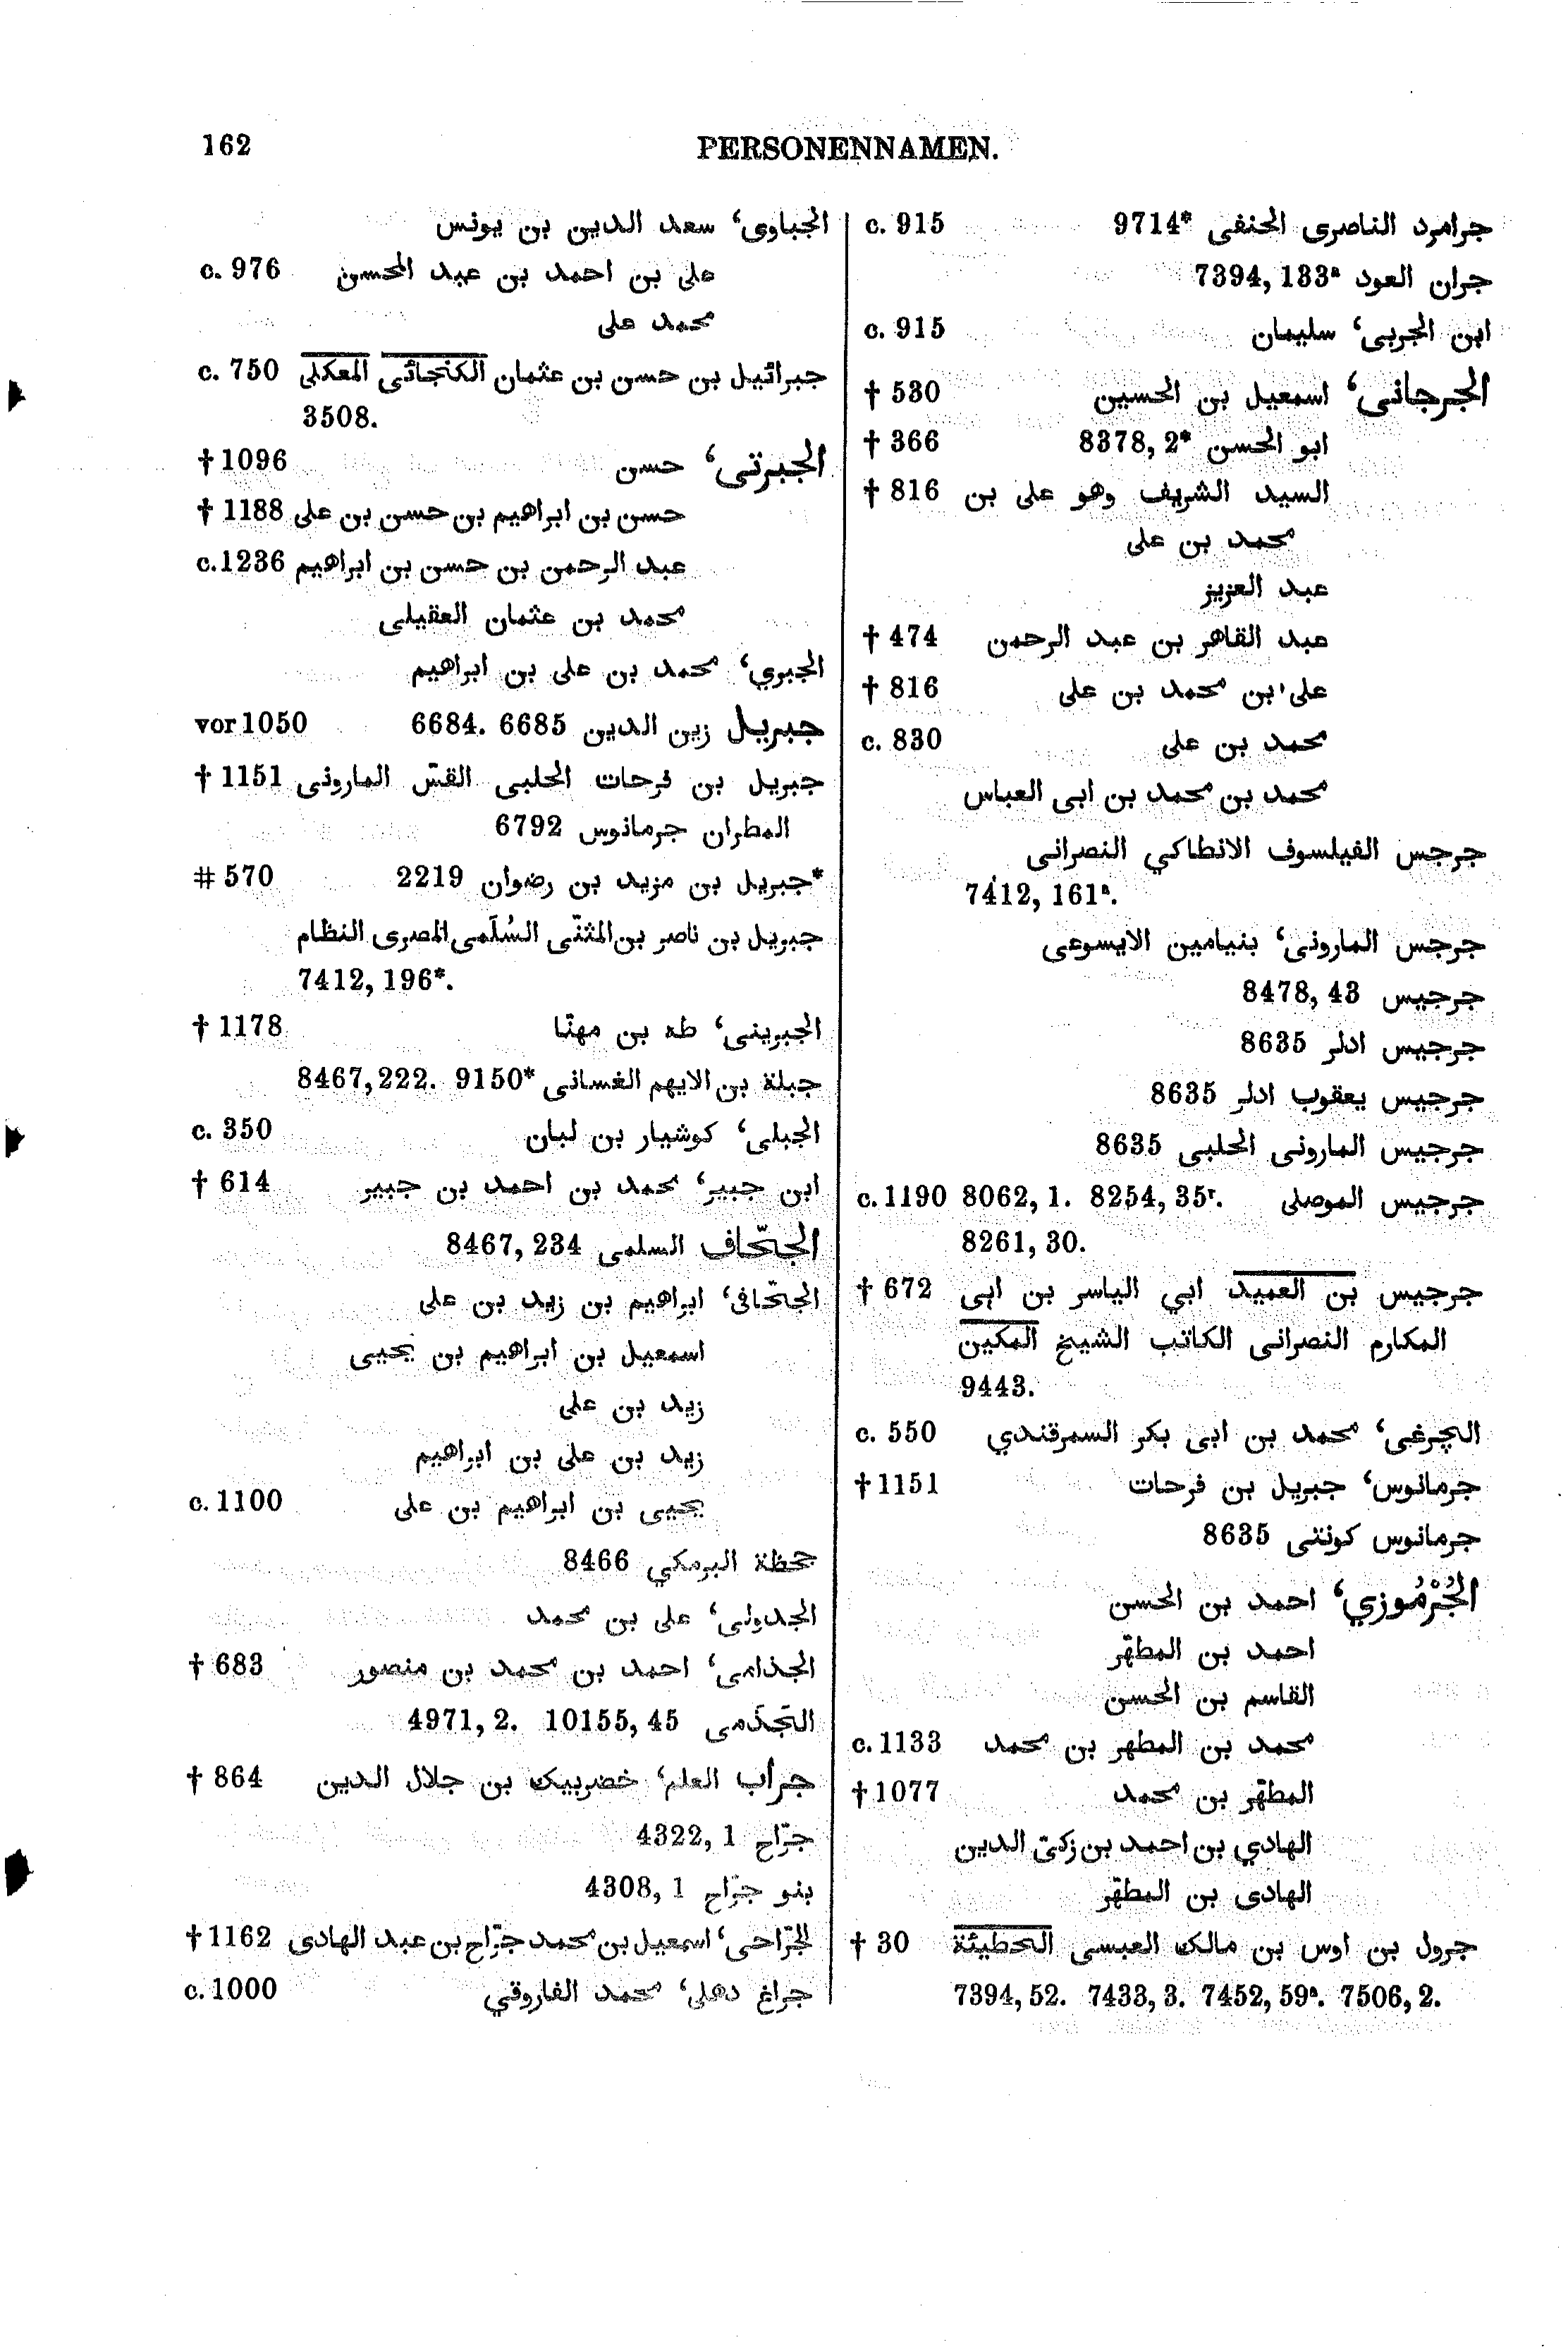 162
PERSONENNAMEN.
الجباوى، سعد الدين بن يونس
على بن احمد بن عبد المحسن c. 976
محمد على
جبرائيل بن حسن بن عثمان الكنجائى المعكلى c. 750
3508.
الجبرتى، حسن † 1096
حسن بن ابراهيم بن حسن بن على † 1188
عبد الرحمن بن حسن بن ابراهيم c. 1236
محمد بن عثمان العقيلى
الجبري، محمد بن على بن ابراهيم
جبريل زين الدين 6684. 6685 vor 1050
جبريل بن فرحات الحلبى القسّ المارونى † 1151
المطران جرمانوس 6792
*جبريل بن مزيد بن رضوان 2219 # 570
جبريل بن ناصر بن المثنّى السُلَمى المصرى النظام
7412, 196*.
الجبرينى، طه بن مهنّا † 1178
جبلة بن الايهم الغسانى 8467, 222. 9150*
الجبلى، كوشيار بن لبان c. 350
ابن جبير، محمد بن احمد بن جبير † 614
الجحّاف السلمى 8467, 234
الجحّافى، ابراهيم بن زيد بن على
اسمعيل بن ابراهيم بن يحيى
زيد بن على
زيد بن على بن ابراهيم
يحيى بن ابراهيم بن على c. 1100
جحظة البرمكي 8466
الجدولى، على بن محمد
الجذامى، احمد بن محمد بن منصور † 683
الجَذَمى 4971, 2. 10155, 45
جراب العلم، خضربيك بن جلال الدين † 864
جرّاح 4322, 1
بنو جرّاح 4308, 1
الجرّاحى، اسمعيل بن محمد جرّاح بن عبد الهادى † 1162
جراغ دهلى، محمد الفاروقي c. 1000
جرامرد الناصرى الحنفى 9714* c. 915
جران العود 7394, 133ᵃ
ابن الجربى، سليمان c. 915
الجرجانى، اسمعيل بن الحسين † 530
ابو الحسن 8378, 2* † 366
السيد الشريف وهو على بن † 816
محمد بن على
عبد العزيز
عبد القاهر بن عبد الرحمن † 474
على بن محمد بن على † 816
محمد بن على c. 830
محمد بن محمد بن ابى العباس
جرجس الفيلسوف الانطاكي النصرانى
7412, 161ᵃ.
جرجس المارونى، بنيامين الايسوعى
جرجيس 8478, 43
جرجيس ادلر 8635
جرجيس يعقوب ادلر 8635
جرجيس المارونى الحلبى 8635
جرجيس الموصلى 8062, 1. 8254, 35ʳ. c. 1190
8261, 30.
جرجيس بن العميد ابي الياسر بن ابى † 672
المكارم النصرانى الكاتب الشيخ المكين
9443.
الچرغى، محمد بن ابى بكر السمرقندي c. 550
جرمانوس، جبريل بن فرحات † 1151
جرمانوس كونتى 8635
الجُرْمُوزي، احمد بن الحسن
احمد بن المطهّر
القاسم بن الحسن
محمد بن المطهر بن محمد c. 1133
المطهّر بن محمد † 1077
الهادي بن احمد بن زكىّ الدين
الهادى بن المطهّر
جرول بن اوس بن مالك العبسى الحطيئة † 30
7394, 52. 7433, 3. 7452, 59ᵃ. 7506, 2.